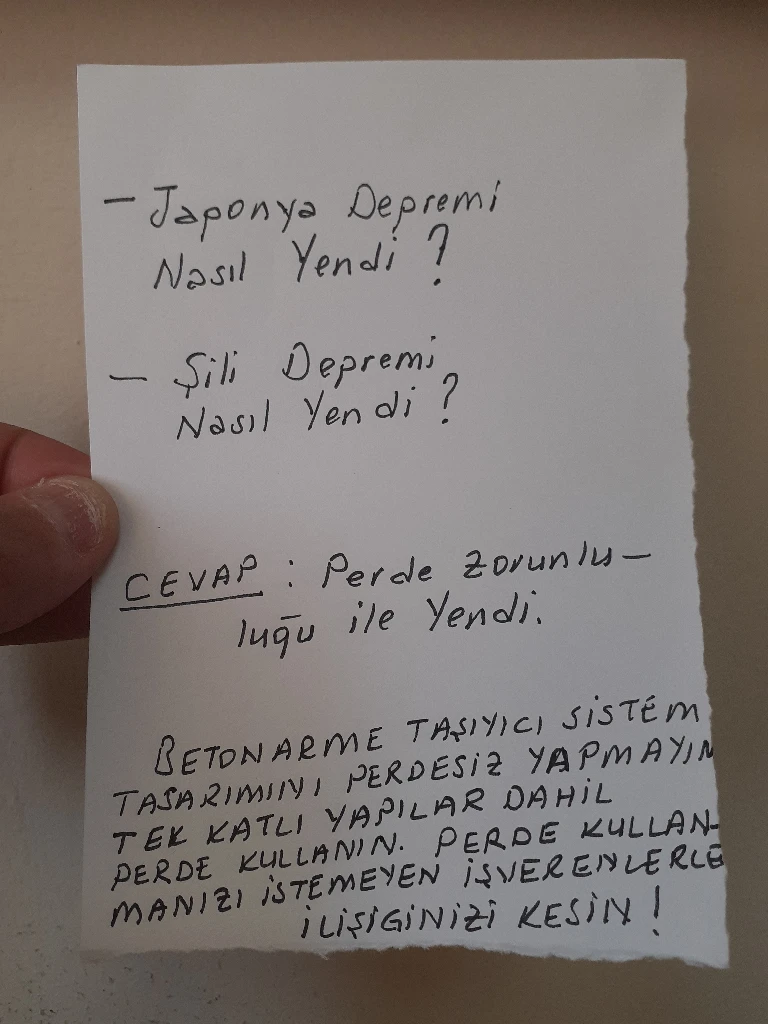 - Japonya Depremi
Nasıl Yendi ?
- Şili Depremi
Nasıl Yendi ?
CEVAP : Perde Zorunlu-
luğu ile Yendi.
BETONARME TAŞIYICI SİSTEM
TASARIMINI PERDESİZ YAPMAYIN
TEK KATLI YAPILAR DAHİL
PERDE KULLANIN. PERDE KULLAN-
MANIZI İSTEMEYEN İŞVERENLERLE
İLİŞİGİNİZİ KESİN !